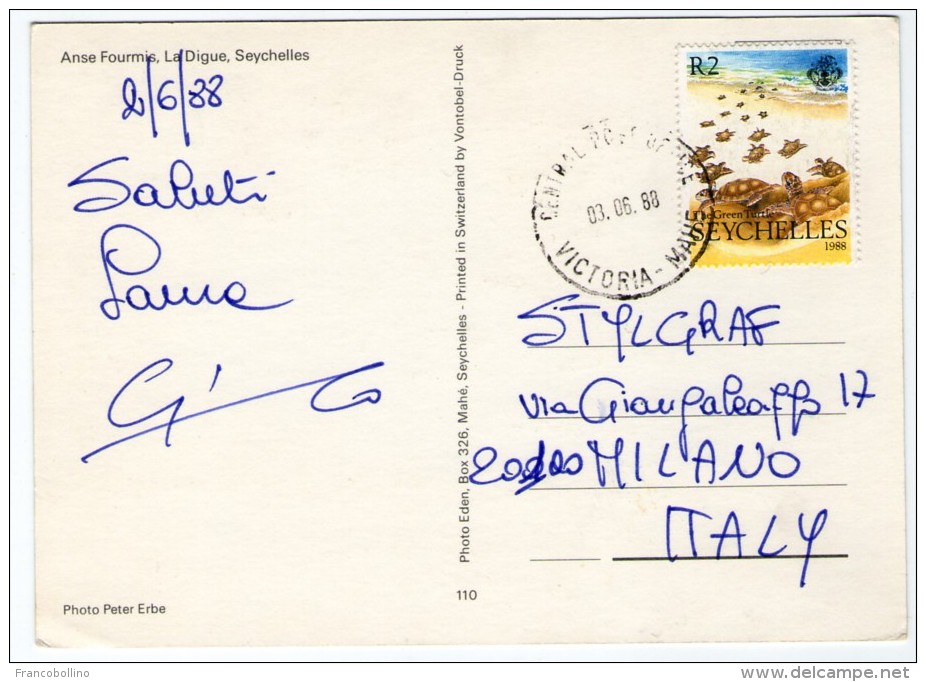 Anse Fourmis, La Digue, Seychelles
2/6/88
Saluti
Laura
Photo Peter Erbe
Photo Eden, Box 326, Mahé, Seychelles - Printed in Switzerland by Vontobel-Druck
110
R2
The Green Turtle
SEYCHELLES
1988
CENTRAL POST OFFICE
03.06.88
VICTORIA - MAHE
STYLGRAF
via Giangaleazzo 17
MILANO
ITALY
Francobollino
www.delcampe.net